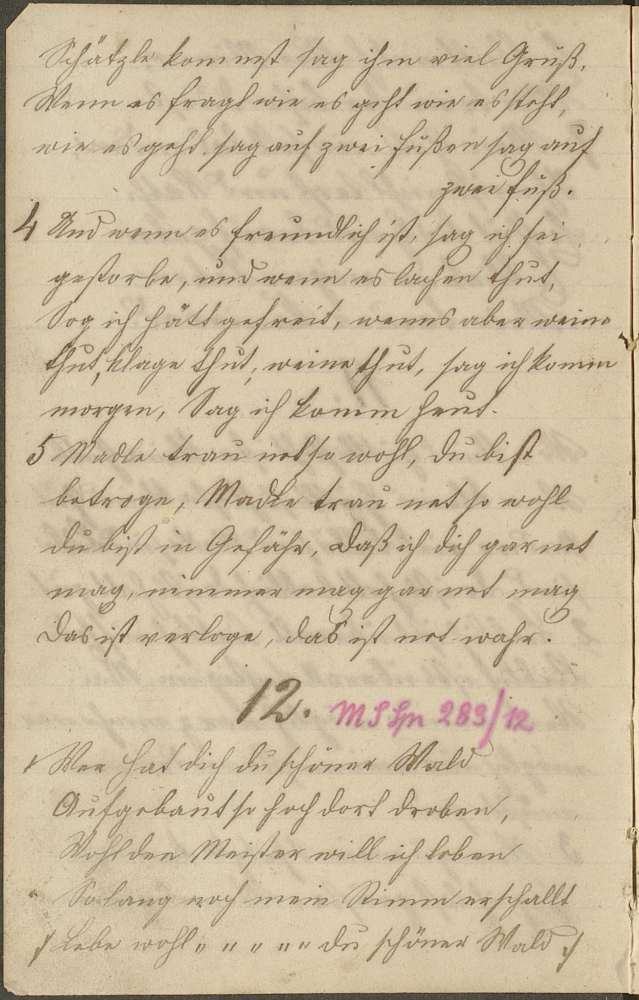 Schätzle kommst sag ihm viel Gruß.
Wenn es fragt wie es geht wie es steht,
wie es geht, sag auf zwei Füßen sag auf
zwei Füß.
4 Und wenn es freundlich ist, sag ich sei
gestorbe, und wenn es lachen thut,
Sag ich hätt gefreit, wenns aber weine
thut, klage thut, weine thut, sag ich komm
morgen, Sag ich komm heut.
5 Madle trau net so wohl, du bist
betroge, Madle trau net so wohl
du bist in Gefähr, Daß ich dich gar net
mag, nimmer mag gar net mag
Das ist verloge, das ist net wahr.
12. MS Hn 283/12
1 Wer hat dich du schöner Wald
Aufgebaut so hoch dort droben,
Wohl den Meister will ich loben
So lang noch mein Stimm erschallt
:/ Lebe wohl " " " " " du schöner Wald :/